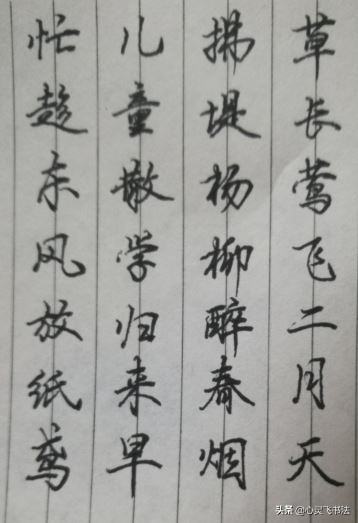 草长莺飞二月天
拂堤杨柳醉春烟
儿童散学归来早
忙趁东风放纸鸢
头条@心灵飞书法